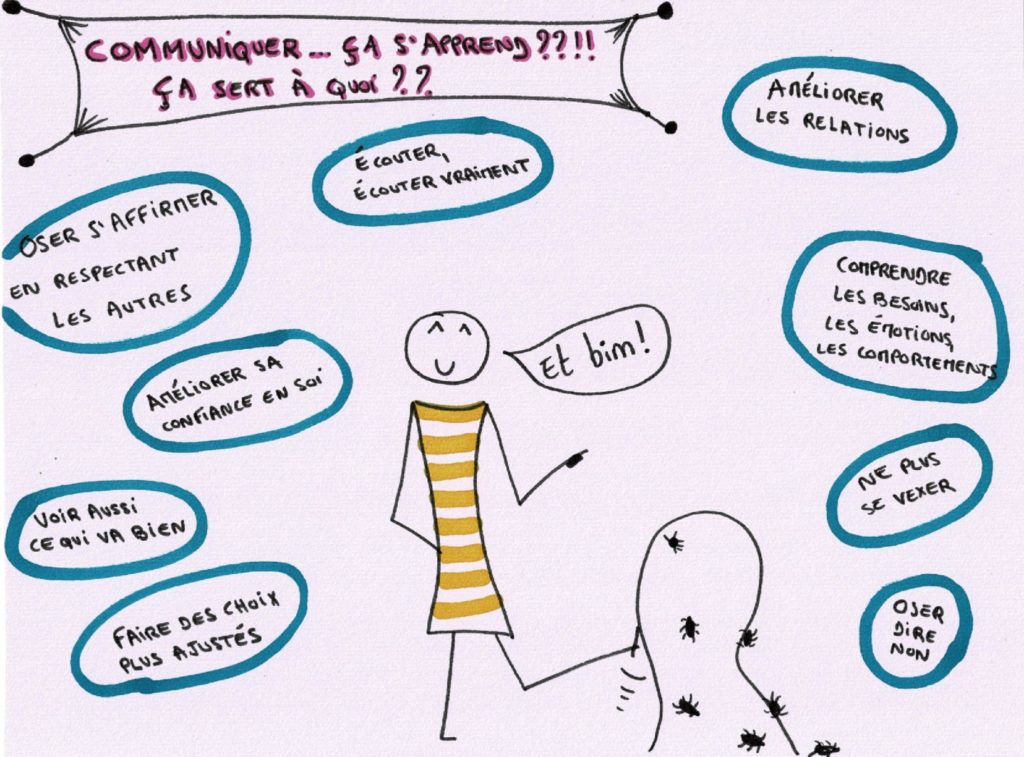 COMMUNIQUER... ÇA S'APPREND??!!
ÇA SERT À QUOI??
AMÉLIORER
LES RELATIONS
ÉCOUTER,
ÉCOUTER VRAIMENT
OSER S'AFFIRMER
EN RESPECTANT
LES AUTRES
COMPRENDRE
LES BESOINS,
LES ÉMOTIONS,
LES COMPORTEMENTS
Et bim!
AMÉLIORER SA
CONFIANCE EN SOI
NE PLUS
SE VEXER
VOIR AUSSI
CE QUI VA BIEN
FAIRE DES CHOIX
PLUS AJUSTÉS
OSER
DIRE
NON